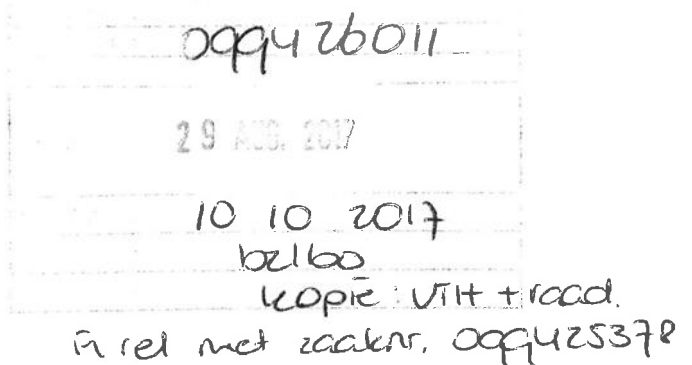 099426011
29 AUG. 2017
10 10 2017
bz/bo
kopie: VTH + raad.
in rel met zaaknr. 099425378